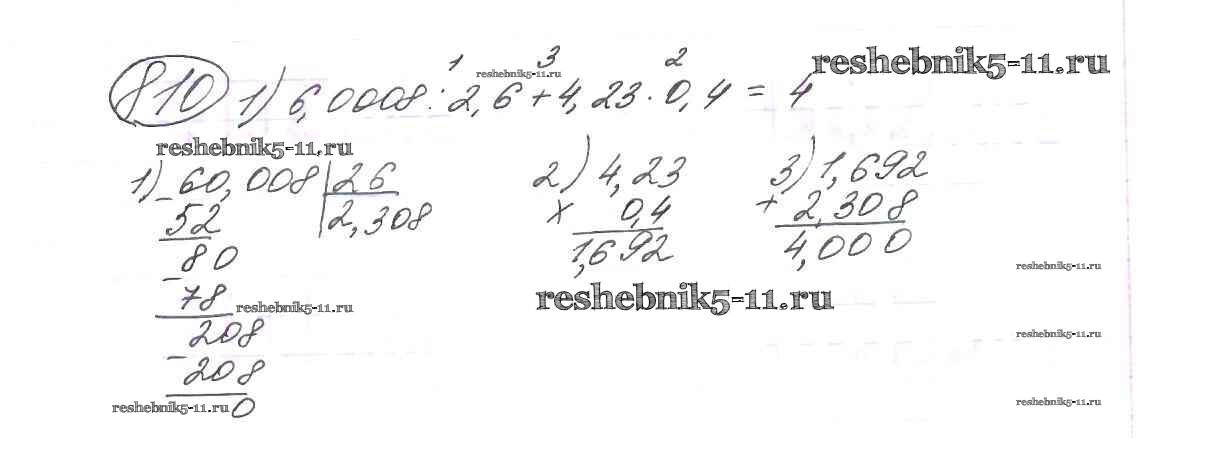 1 3 2
810 1) 6,0008 : 2,6 + 4,23 · 0,4 = 4
reshebnik5-11.ru
reshebnik5-11.ru
reshebnik5-11.ru
1) 60,008 | 26
− 52 | 2,308
80
− 78
208
− 208
0
reshebnik5-11.ru
reshebnik5-11.ru
2) 4,23
x 0,4
1,692
3) 1,692
+ 2,308
4,000
reshebnik5-11.ru
reshebnik5-11.ru
reshebnik5-11.ru
reshebnik5-11.ru